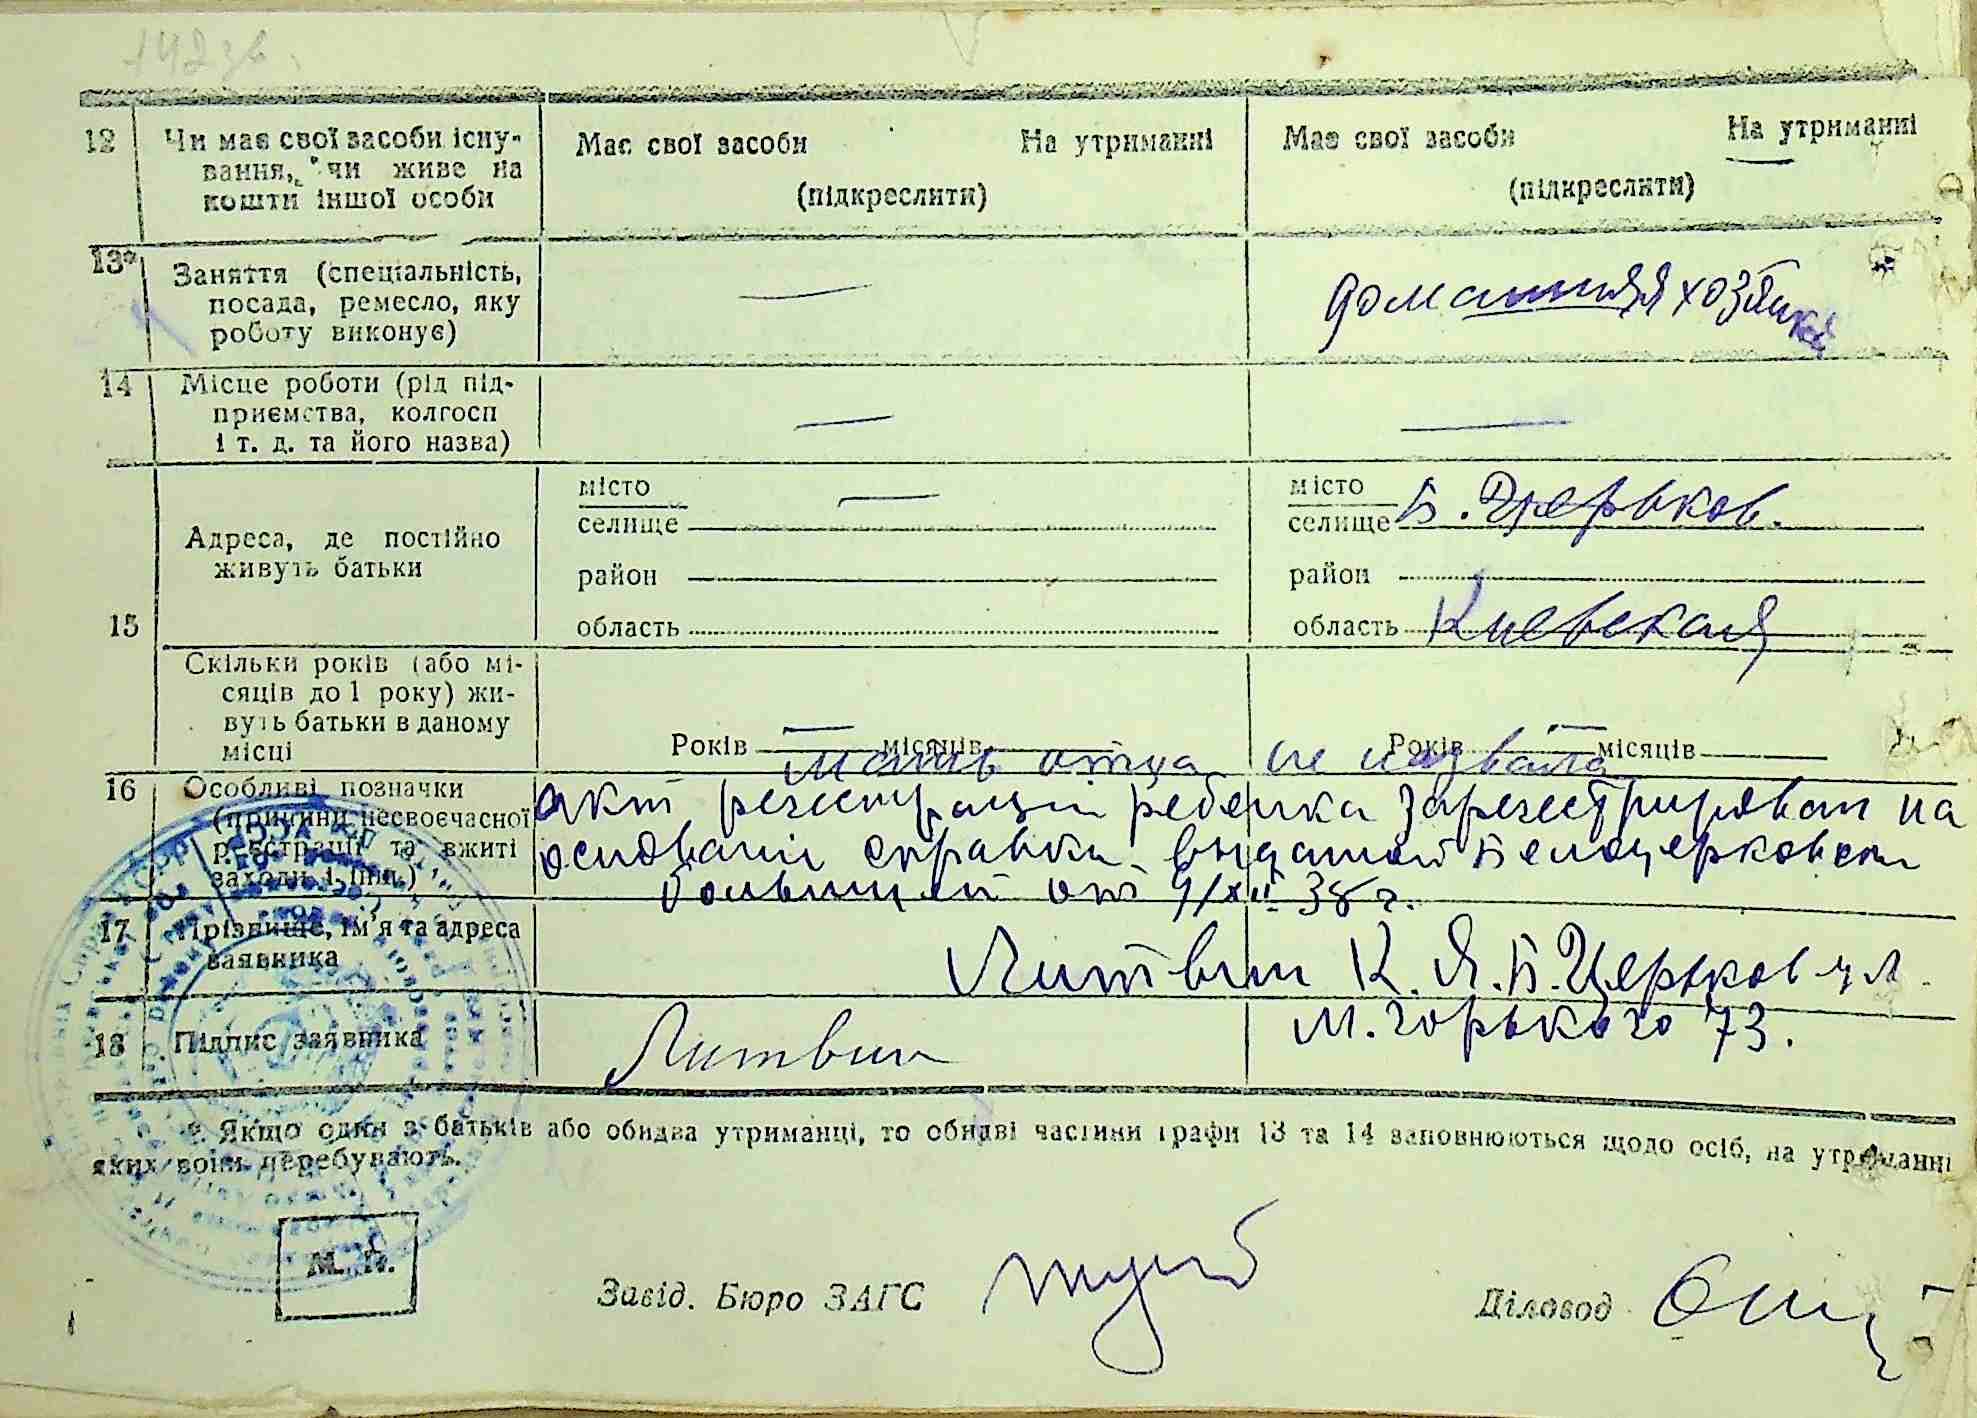 142 зв.
12 Чи має свої засоби існу-
вання, чи живе на
кошти іншої особи
Має свої засоби На утриманні
(підкреслити)
Має свої засоби На утриманні
(підкреслити)
13* Заняття (спеціальність,
посада, ремесло, яку
роботу виконує)
—
домашняя хозяйка
14 Місце роботи (рід під-
приємства, колгосп
і т. д. та його назва)
—
—
15
Адреса, де постійно
живуть батьки
місто —
селище
район
область
місто
селище Б. Церьков.
район
область Киевская
Скільки років (або мі-
сяців до 1 року) жи-
вуть батьки в даному
місці
Років — місяців
Років — місяців
16 Особливі позначки
(причини несвоєчасної
реєстрації та вжиті
заходи і інш.)
Мать отца не назвала
акт регистрации ребенка зарегестрирован на
основании справки выданой Белоцерковском
больницей от 9/XII 38 г.
17 Прізвище, ім'я та адреса
заявника
Литвин К. Я. Б. Церьков ул.
М. Горького 73.
18 Підпис заявника
Литвин
* Якщо один з батьків або обидва утриманці, то обидві частини графи 13 та 14 заповнюються щодо осіб, на утриманні
яких вони перебувають.
М. П.
Завід. Бюро ЗАГС
Діловод